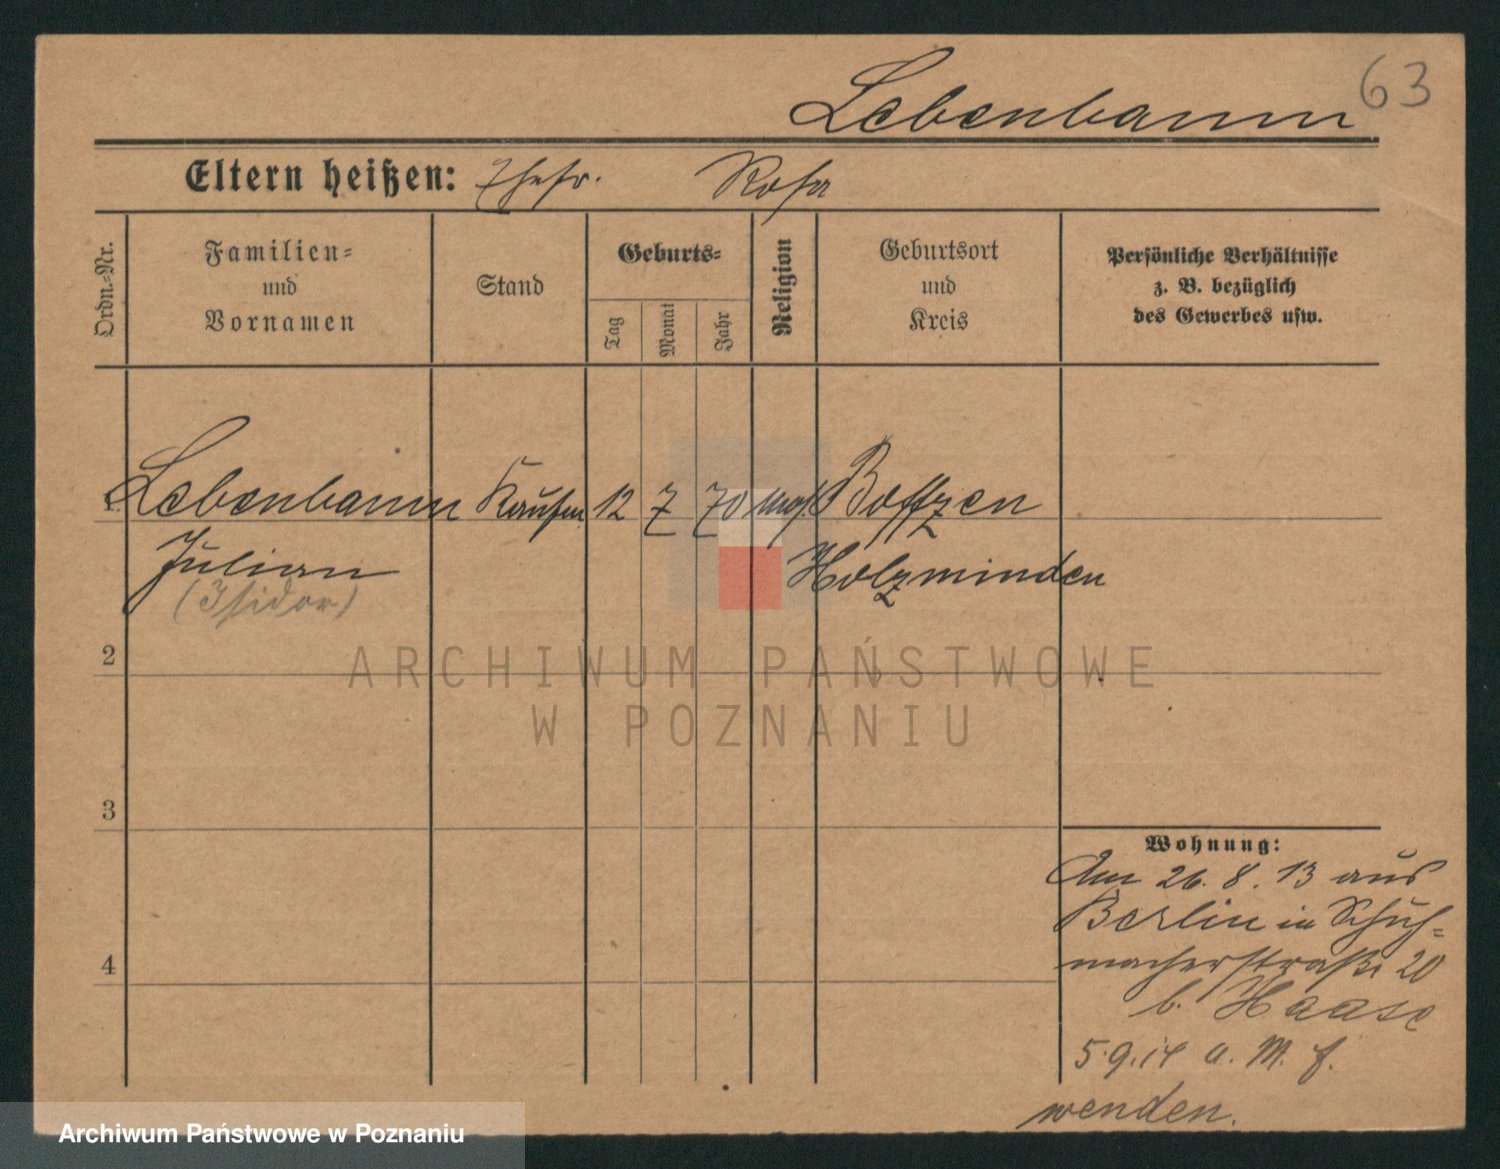 63
Lebenbaum
Eltern heißen: Ehefr. Rosa
Ordn.=Nr.
Familien=
und
Vornamen
Stand
Geburts=
Tag
Monat
Jahr
Religion
Geburtsort
und
Kreis
Persönliche Verhältnisse
z. B. bezüglich
des Gewerbes usw.
1 Lebenbaum Kaufm. 12 7 70 mos. Boffzen
Julian Holzminden
(Isidor)
2
ARCHIWUM PAŃSTWOWE
W POZNANIU
3
Wohnung:
Am 26. 8. 13 aus
Berlin in Schuh=
macherstraße 20
4
b. Haase
5.9.14 a. M. f.
wenden.
Archiwum Państwowe w Poznaniu